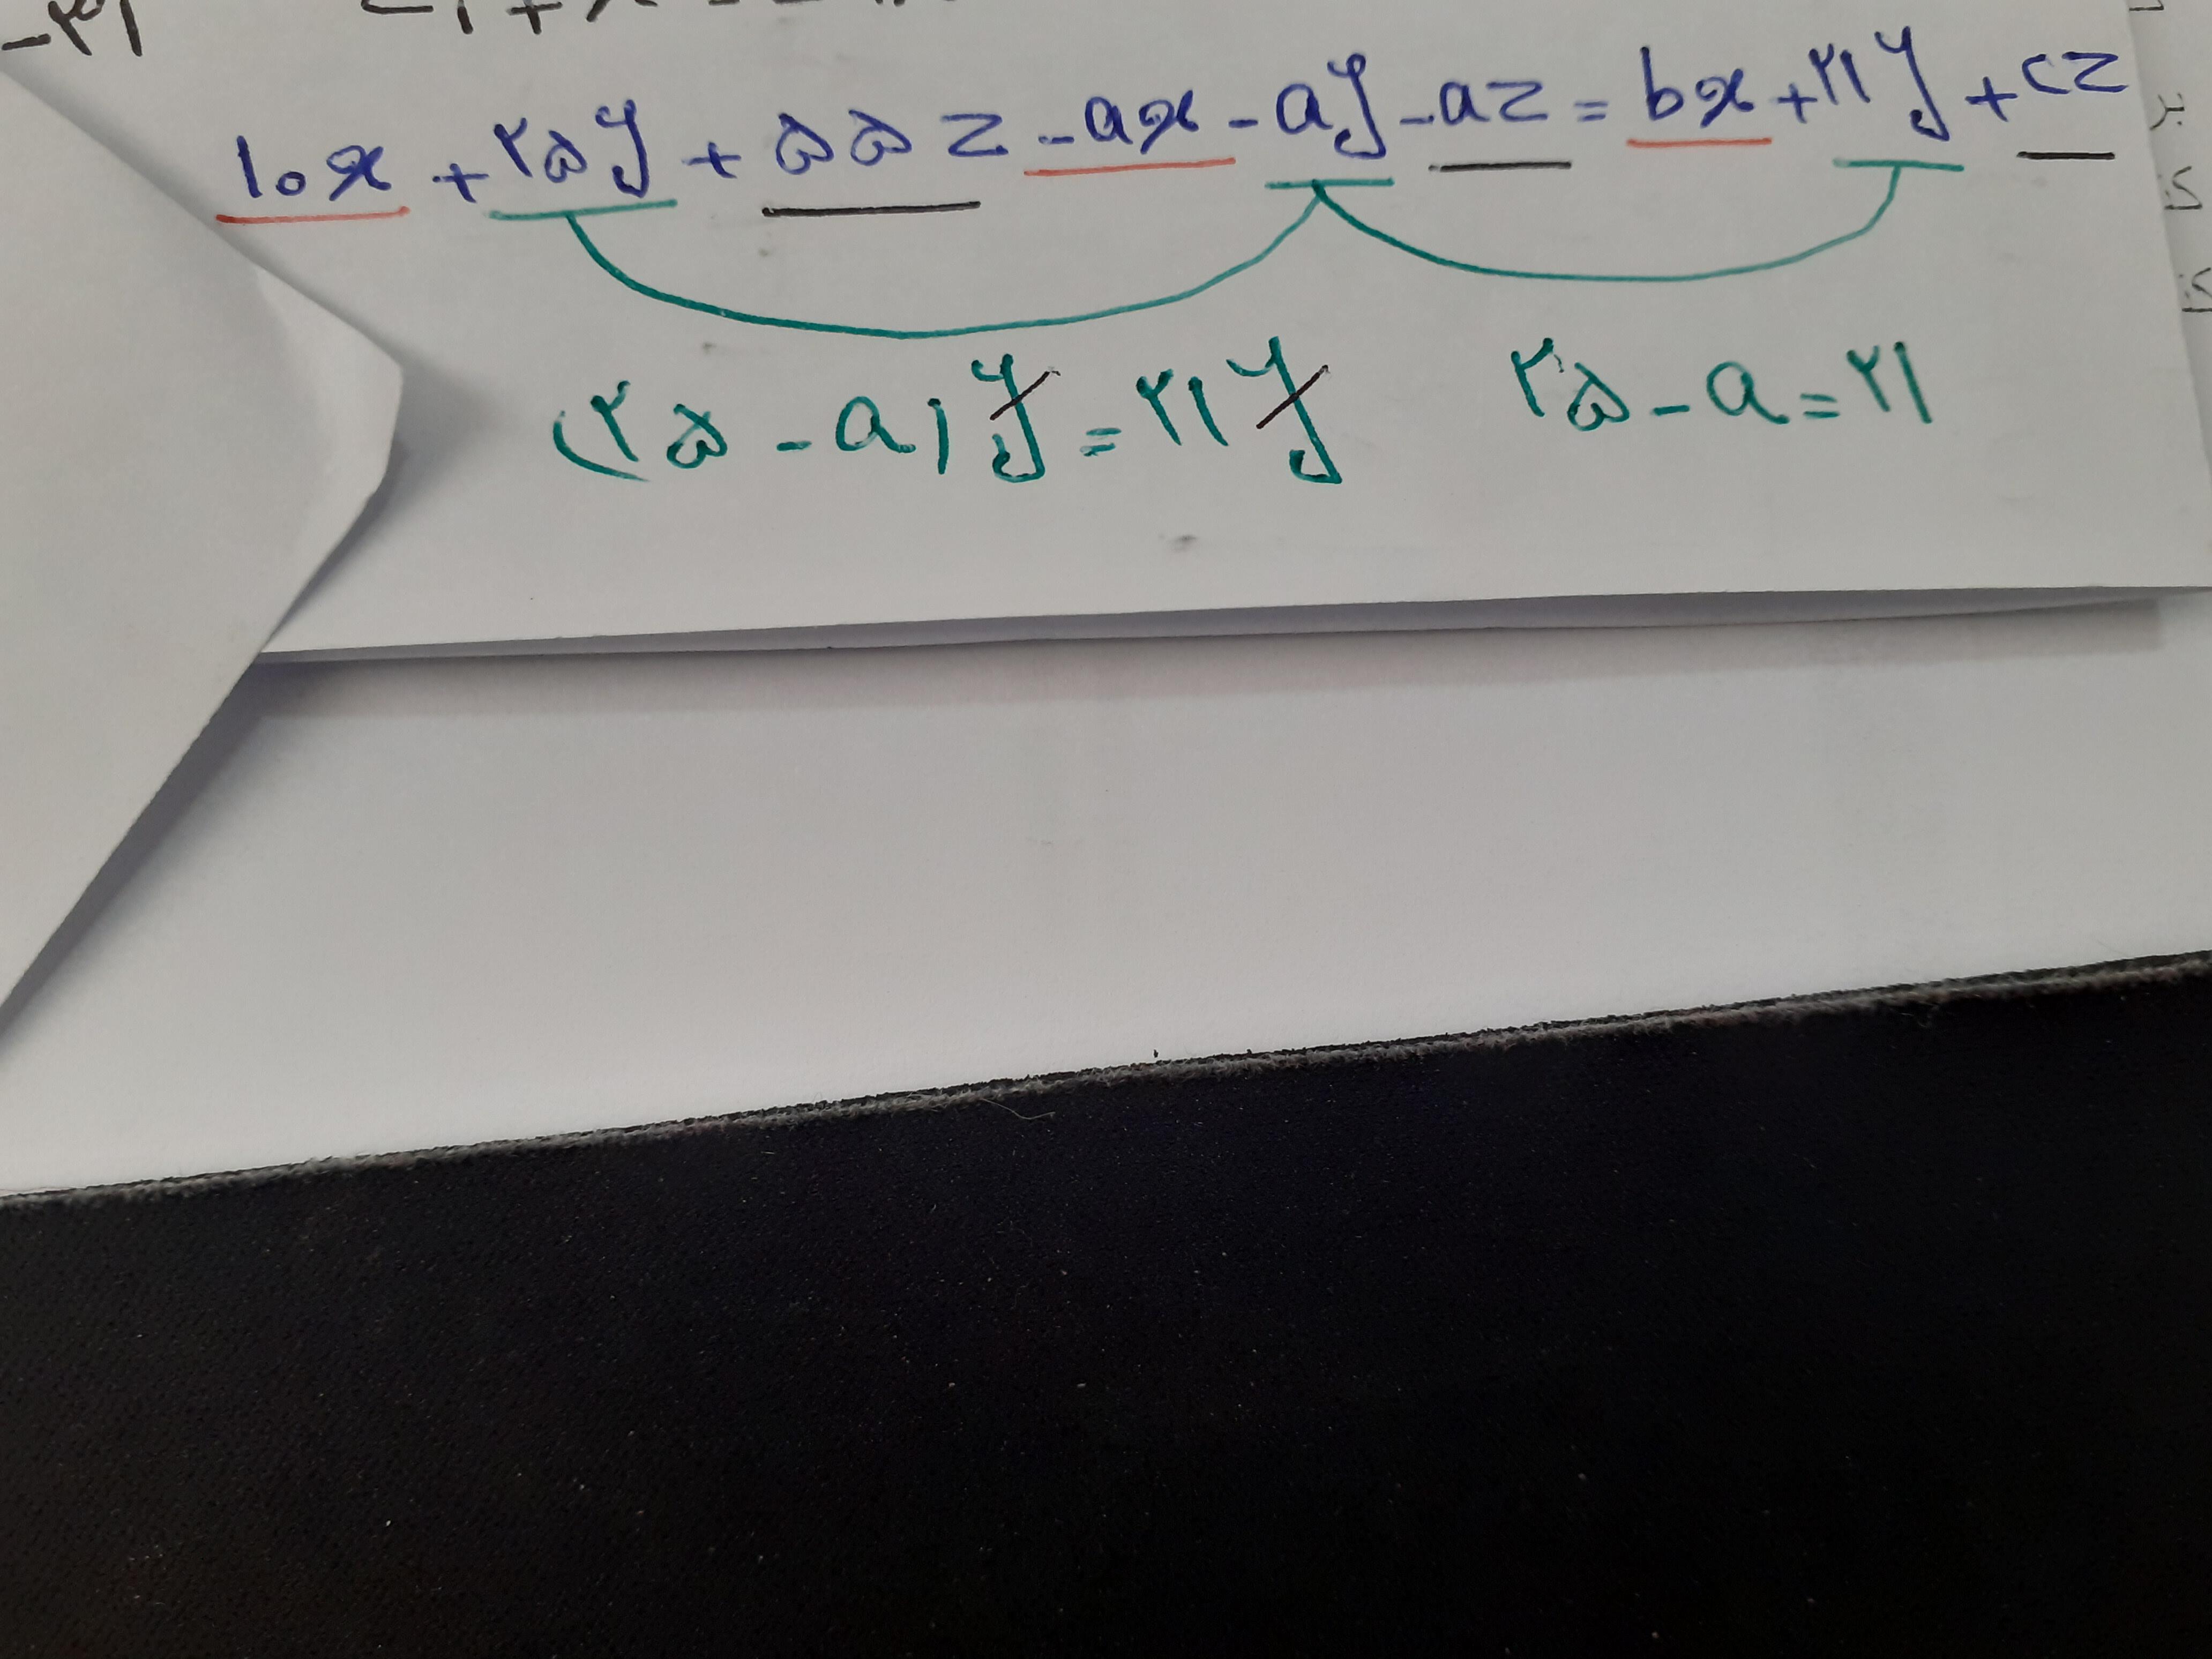 ۱۰x + ۲۵y + ۵۵z - ax - ay - az = bx + ۲۱y + cz
(۲۵ - a) y = ۲۱y ۲۵ - a = ۲۱